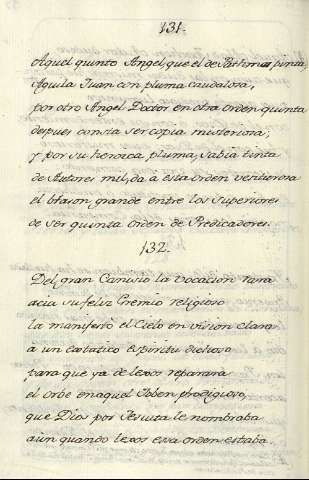 131.
Aquel quinto Angel, que el de Pathmos pinta,
Aguila Juan con pluma caudalosa,
por otro Angel Doctor en otra orden quinta
despues consta ser copia misteriosa,
y por su heroica pluma, sabia tinta
de Autores mil, da à esta orden
el blason grande entre los Superiores
de ser quinta orden de Predicadores.
132.
Del gran Canisio la vocacion rara
acia su feliz Gremio religioso
la manifestò el Cielo en vision clara
à un extatico espiritu dichoso
para que ya de lexos reparara
el orbe en aquel Joben prodigioso,
que Dios por Jesuita le nombraba
aun quando lexos essa orden estaba.